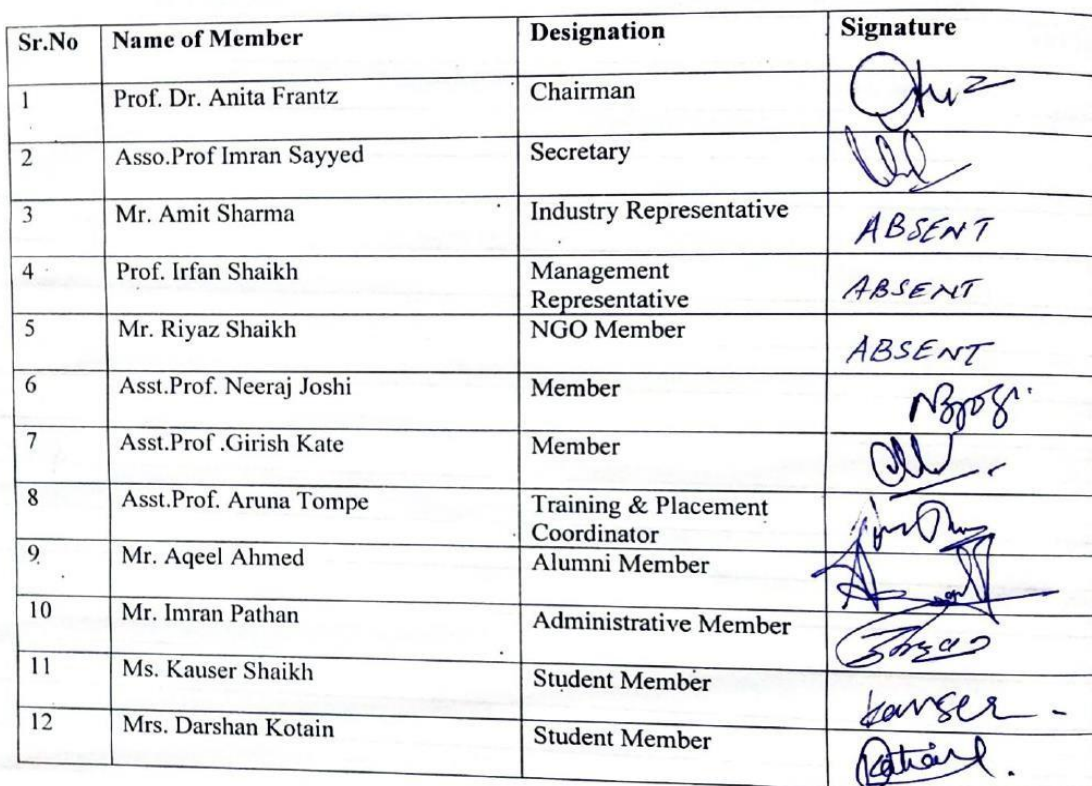 Sr.No Name of Member Designation Signature
1 Prof. Dr. Anita Frantz Chairman
2 Asso.Prof Imran Sayyed Secretary
3 Mr. Amit Sharma Industry Representative ABSENT
4 Prof. Irfan Shaikh Management
Representative ABSENT
5 Mr. Riyaz Shaikh NGO Member ABSENT
6 Asst.Prof. Neeraj Joshi Member
7 Asst.Prof .Girish Kate Member
8 Asst.Prof. Aruna Tompe Training & Placement
Coordinator
9 Mr. Aqeel Ahmed Alumni Member
10 Mr. Imran Pathan Administrative Member
11 Ms. Kauser Shaikh Student Member kauser
12 Mrs. Darshan Kotain Student Member